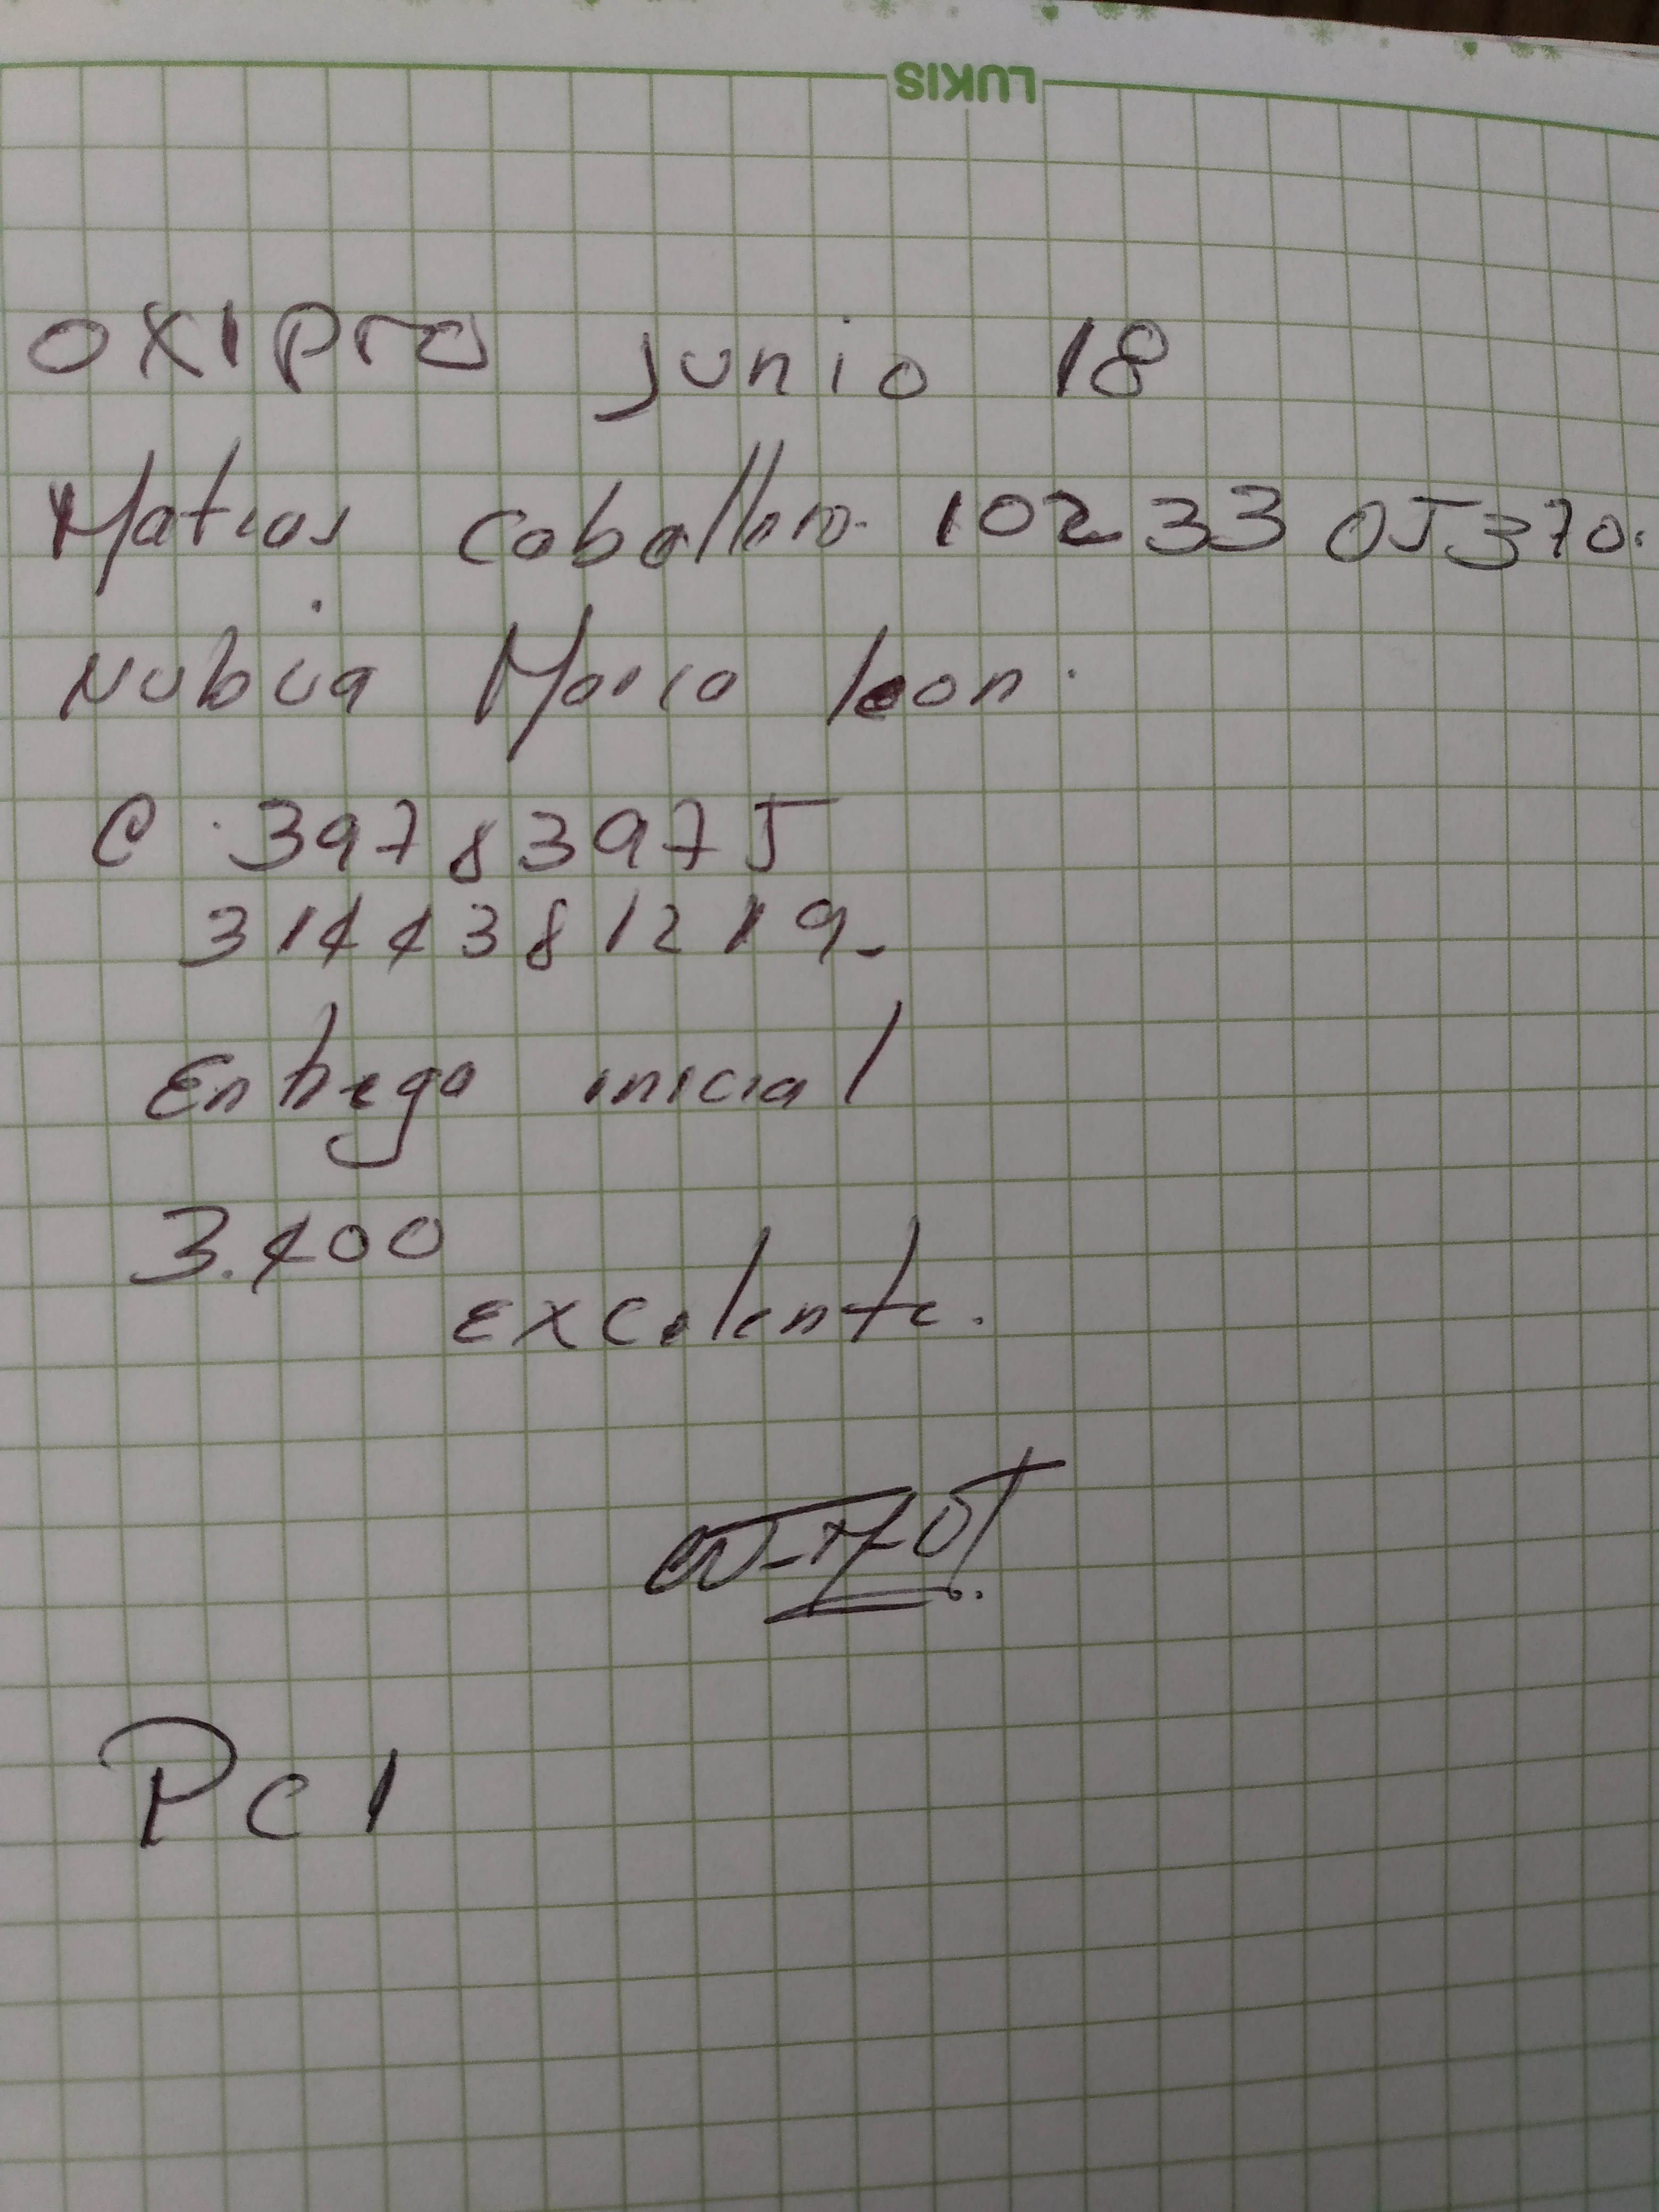 LUKIS
OXIPro junio 18
Matias Caballero. 1023305370.
Nubia Maria leon.
C. 39783975
3144381219.
Entrega inicial
3.400
Excelente.
PC1